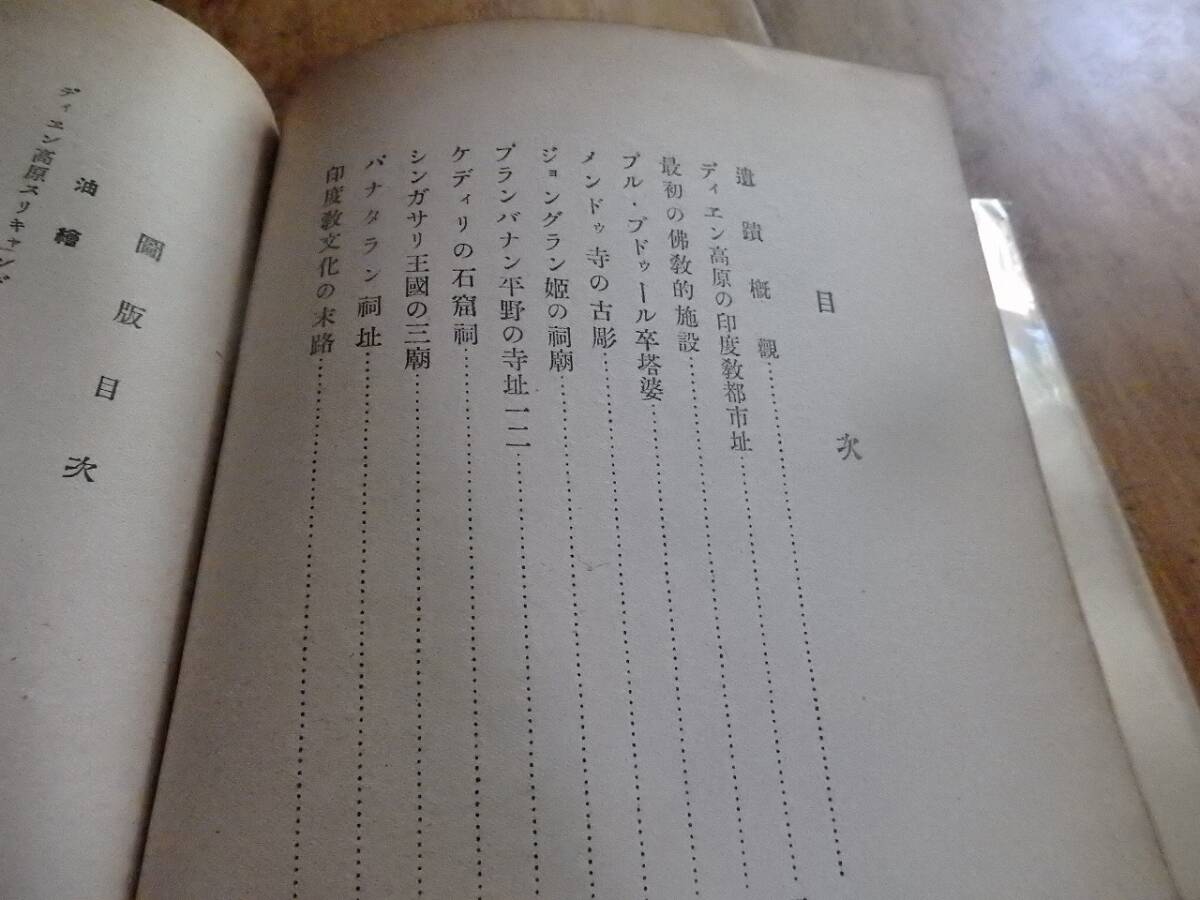 目次
遺蹟概觀
ディエン高原の印度敎都市址
最初の佛敎的施設
ブル・ブドゥール卒塔婆
メンドゥ寺の古彫
ジョングラン姬の祠廟
プランバナン平野の寺址一二
ケディリの石窟祠
シンガサリ王國の三廟
パナタラン祠址
印度敎文化の末路
圖版目次
油繪
ディエン高原スリキャンデ